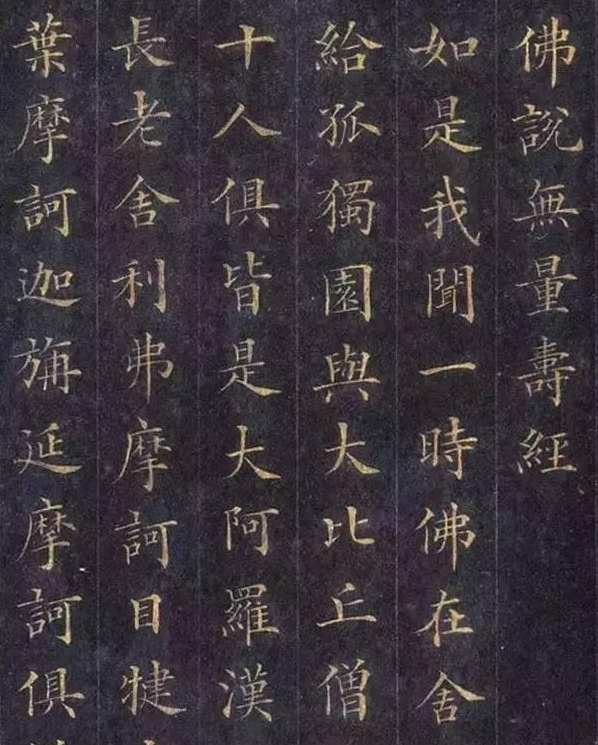 佛說無量壽經
如是我聞一時佛在舍
給孤獨園與大比丘僧
十人俱皆是大阿羅漢
長老舍利弗摩訶目犍
葉摩訶迦旃延摩訶俱